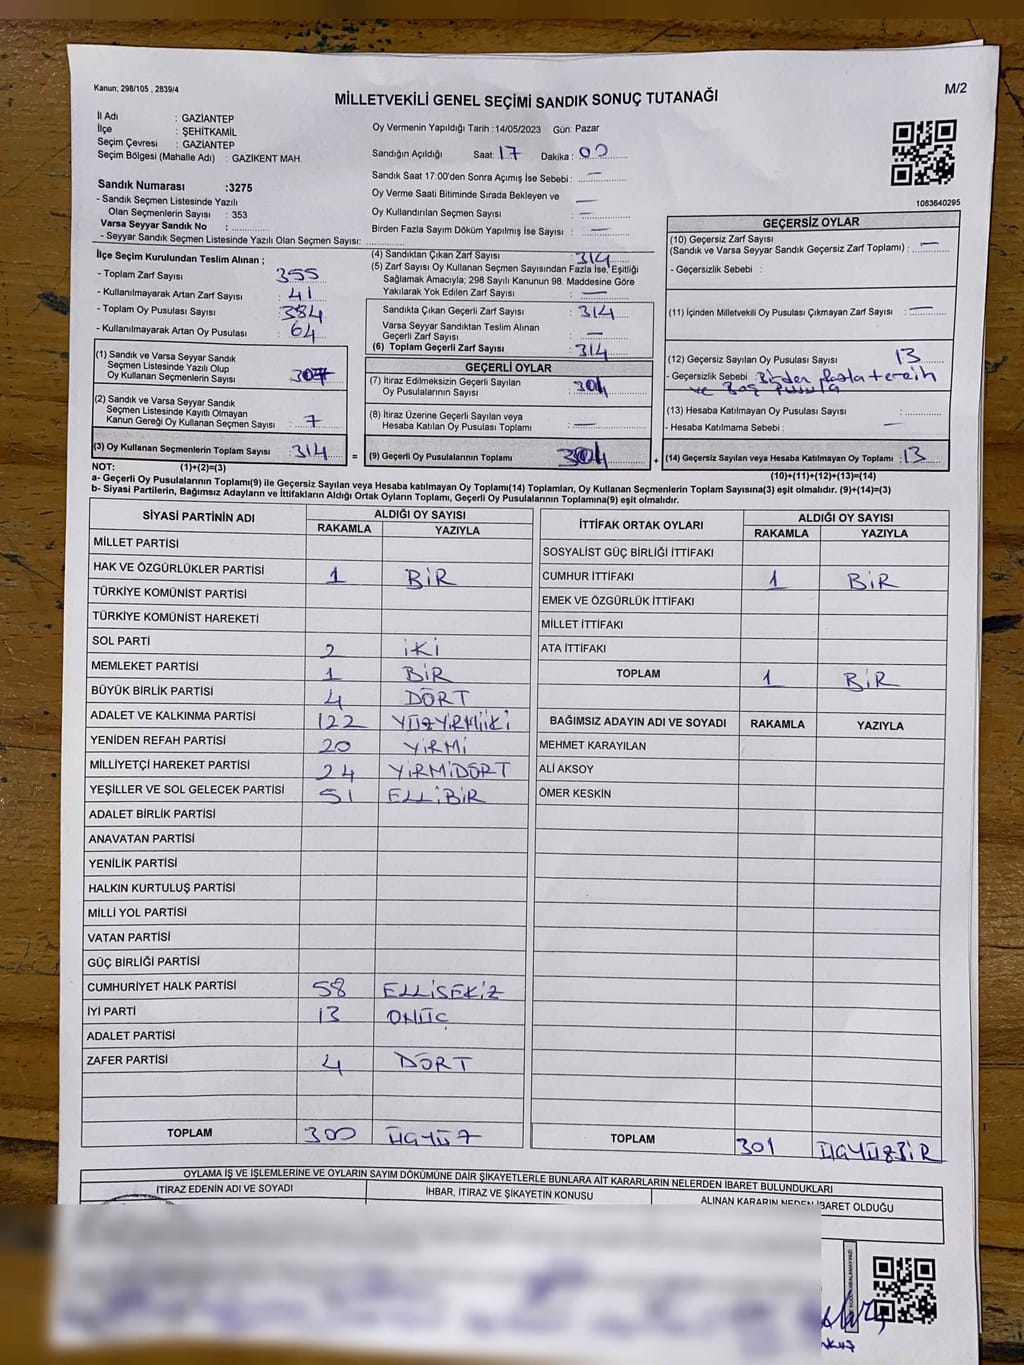 Kanun; 298/105 , 2839/4
MİLLETVEKİLİ GENEL SEÇİMİ SANDIK SONUÇ TUTANAĞI
M/2
İl Adı : GAZİANTEP
İlçe : ŞEHİTKAMİL
Seçim Çevresi : GAZİANTEP
Seçim Bölgesi (Mahalle Adı) : GAZİKENT MAH.
Oy Vermenin Yapıldığı Tarih :14/05/2023 Gün: Pazar
Sandığın Açıldığı Saat: 17 Dakika : 00
Sandık Saat 17:00'den Sonra Açımış İse Sebebi : —
Oy Verme Saati Bitiminde Sırada Bekleyen ve
Oy Kullandırılan Seçmen Sayısı : —
Birden Fazla Sayım Döküm Yapılmış İse Sayısı : —
1083640295
Sandık Numarası :3275
- Sandık Seçmen Listesinde Yazılı
Olan Seçmenlerin Sayısı : 353
Varsa Seyyar Sandık No :
- Seyyar Sandık Seçmen Listesinde Yazılı Olan Seçmen Sayısı:
İlçe Seçim Kurulundan Teslim Alınan ;
- Toplam Zarf Sayısı : 355
- Kullanılmayarak Artan Zarf Sayısı : 41
- Toplam Oy Pusulası Sayısı : 384
- Kullanılmayarak Artan Oy Pusulası : 64
(1) Sandık ve Varsa Seyyar Sandık
Seçmen Listesinde Yazılı Olup
Oy Kullanan Seçmenlerin Sayısı : 307
(2) Sandık ve Varsa Seyyar Sandık
Seçmen Listesinde Kayıtlı Olmayan
Kanun Gereği Oy Kullanan Seçmen Sayısı : 7
(3) Oy Kullanan Seçmenlerin Toplam Sayısı : 314 =
(4) Sandıktan Çıkan Zarf Sayısı : 314
(5) Zarf Sayısı Oy Kullanan Seçmen Sayısından Fazla İse, Eşitliği
Sağlamak Amacıyla; 298 Sayılı Kanunun 98. Maddesine Göre
Yakılarak Yok Edilen Zarf Sayısı : —
Sandıkta Çıkan Geçerli Zarf Sayısı : 314
Varsa Seyyar Sandıktan Teslim Alınan
Geçerli Zarf Sayısı : —
(6) Toplam Geçerli Zarf Sayısı : 314
GEÇERLİ OYLAR
(7) İtiraz Edilmeksizin Geçerli Sayılan
Oy Pusulasının Sayısı : 301
(8) İtiraz Üzerine Geçerli Sayılan veya
Hesaba Katılan Oy Pusulası Toplamı : —
(9) Geçerli Oy Pusulalarının Toplamı : 301 +
GEÇERSİZ OYLAR
(10) Geçersiz Zarf Sayısı
(Sandık ve Varsa Seyyar Sandık Geçersiz Zarf Toplamı) : —
- Geçersizlik Sebebi :
(11) İçinden Milletvekili Oy Pusulası Çıkmayan Zarf Sayısı : —
(12) Geçersiz Sayılan Oy Pusulası Sayısı : 13
- Geçersizlik Sebebi : Birden fazla tercih
ve Boş Pusula
(13) Hesaba Katılmayan Oy Pusulası Sayısı :
- Hesaba Katılmama Sebebi : —
(14) Geçersiz Sayılan veya Hesaba Katılmayan Oy Toplamı : 13
NOT: (1)+(2)=(3)
(10)+(11)+(12)+(13)=(14)
a- Geçerli Oy Pusulalarının Toplamı(9) ile Geçersiz Sayılan veya Hesaba katılmayan Oy Toplamı(14) Toplamları, Oy Kullanan Seçmenlerin Toplam Sayısına(3) eşit olmalıdır. (9)+(14)=(3)
b- Siyasi Partilerin, Bağımsız Adayların ve İttifakların Aldığı Ortak Oyların Toplamı, Geçerli Oy Pusulalarının Toplamına(9) eşit olmalıdır.
SİYASİ PARTİNİN ADI ALDIĞI OY SAYISI
RAKAMLA YAZIYLA
MİLLET PARTİSİ
HAK VE ÖZGÜRLÜKLER PARTİSİ 1 BİR
TÜRKİYE KOMÜNİST PARTİSİ
TÜRKİYE KOMÜNİST HAREKETİ
SOL PARTİ 2 İKİ
MEMLEKET PARTİSİ 1 BİR
BÜYÜK BİRLİK PARTİSİ 4 DÖRT
ADALET VE KALKINMA PARTİSİ 122 YÜZYİRMİİKİ
YENİDEN REFAH PARTİSİ 20 YİRMİ
MİLLİYETÇİ HAREKET PARTİSİ 24 YİRMİDÖRT
YEŞİLLER VE SOL GELECEK PARTİSİ 51 ELLİBİR
ADALET BİRLİK PARTİSİ
ANAVATAN PARTİSİ
YENİLİK PARTİSİ
HALKIN KURTULUŞ PARTİSİ
MİLLİ YOL PARTİSİ
VATAN PARTİSİ
GÜÇ BİRLİĞİ PARTİSİ
CUMHURİYET HALK PARTİSİ 58 ELLİSEKİZ
İYİ PARTİ 13 ONÜÇ
ADALET PARTİSİ
ZAFER PARTİSİ 4 DÖRT
TOPLAM 300 ÜÇYÜZ
İTTİFAK ORTAK OYLARI ALDIĞI OY SAYISI
RAKAMLA YAZIYLA
SOSYALİST GÜÇ BİRLİĞİ İTTİFAKI
CUMHUR İTTİFAKI 1 BİR
EMEK VE ÖZGÜRLÜK İTTİFAKI
MİLLET İTTİFAKI
ATA İTTİFAKI
TOPLAM 1 BİR
BAĞIMSIZ ADAYIN ADI VE SOYADI RAKAMLA YAZIYLA
MEHMET KARAYILAN
ALİ AKSOY
ÖMER KESKİN
TOPLAM 301 ÜÇYÜZBİR
OYLAMA İŞ VE İŞLEMLERİNE VE OYLARIN SAYIM DÖKÜMÜNE DAİR ŞİKAYETLERLE BUNLARA AİT KARARLARIN NELERDEN İBARET BULUNDUKLARI
İTİRAZ EDENİN ADI VE SOYADI İHBAR, İTİRAZ VE ŞİKAYETİN KONUSU ALINAN KARARIN NEDEN İBARET OLDUĞU